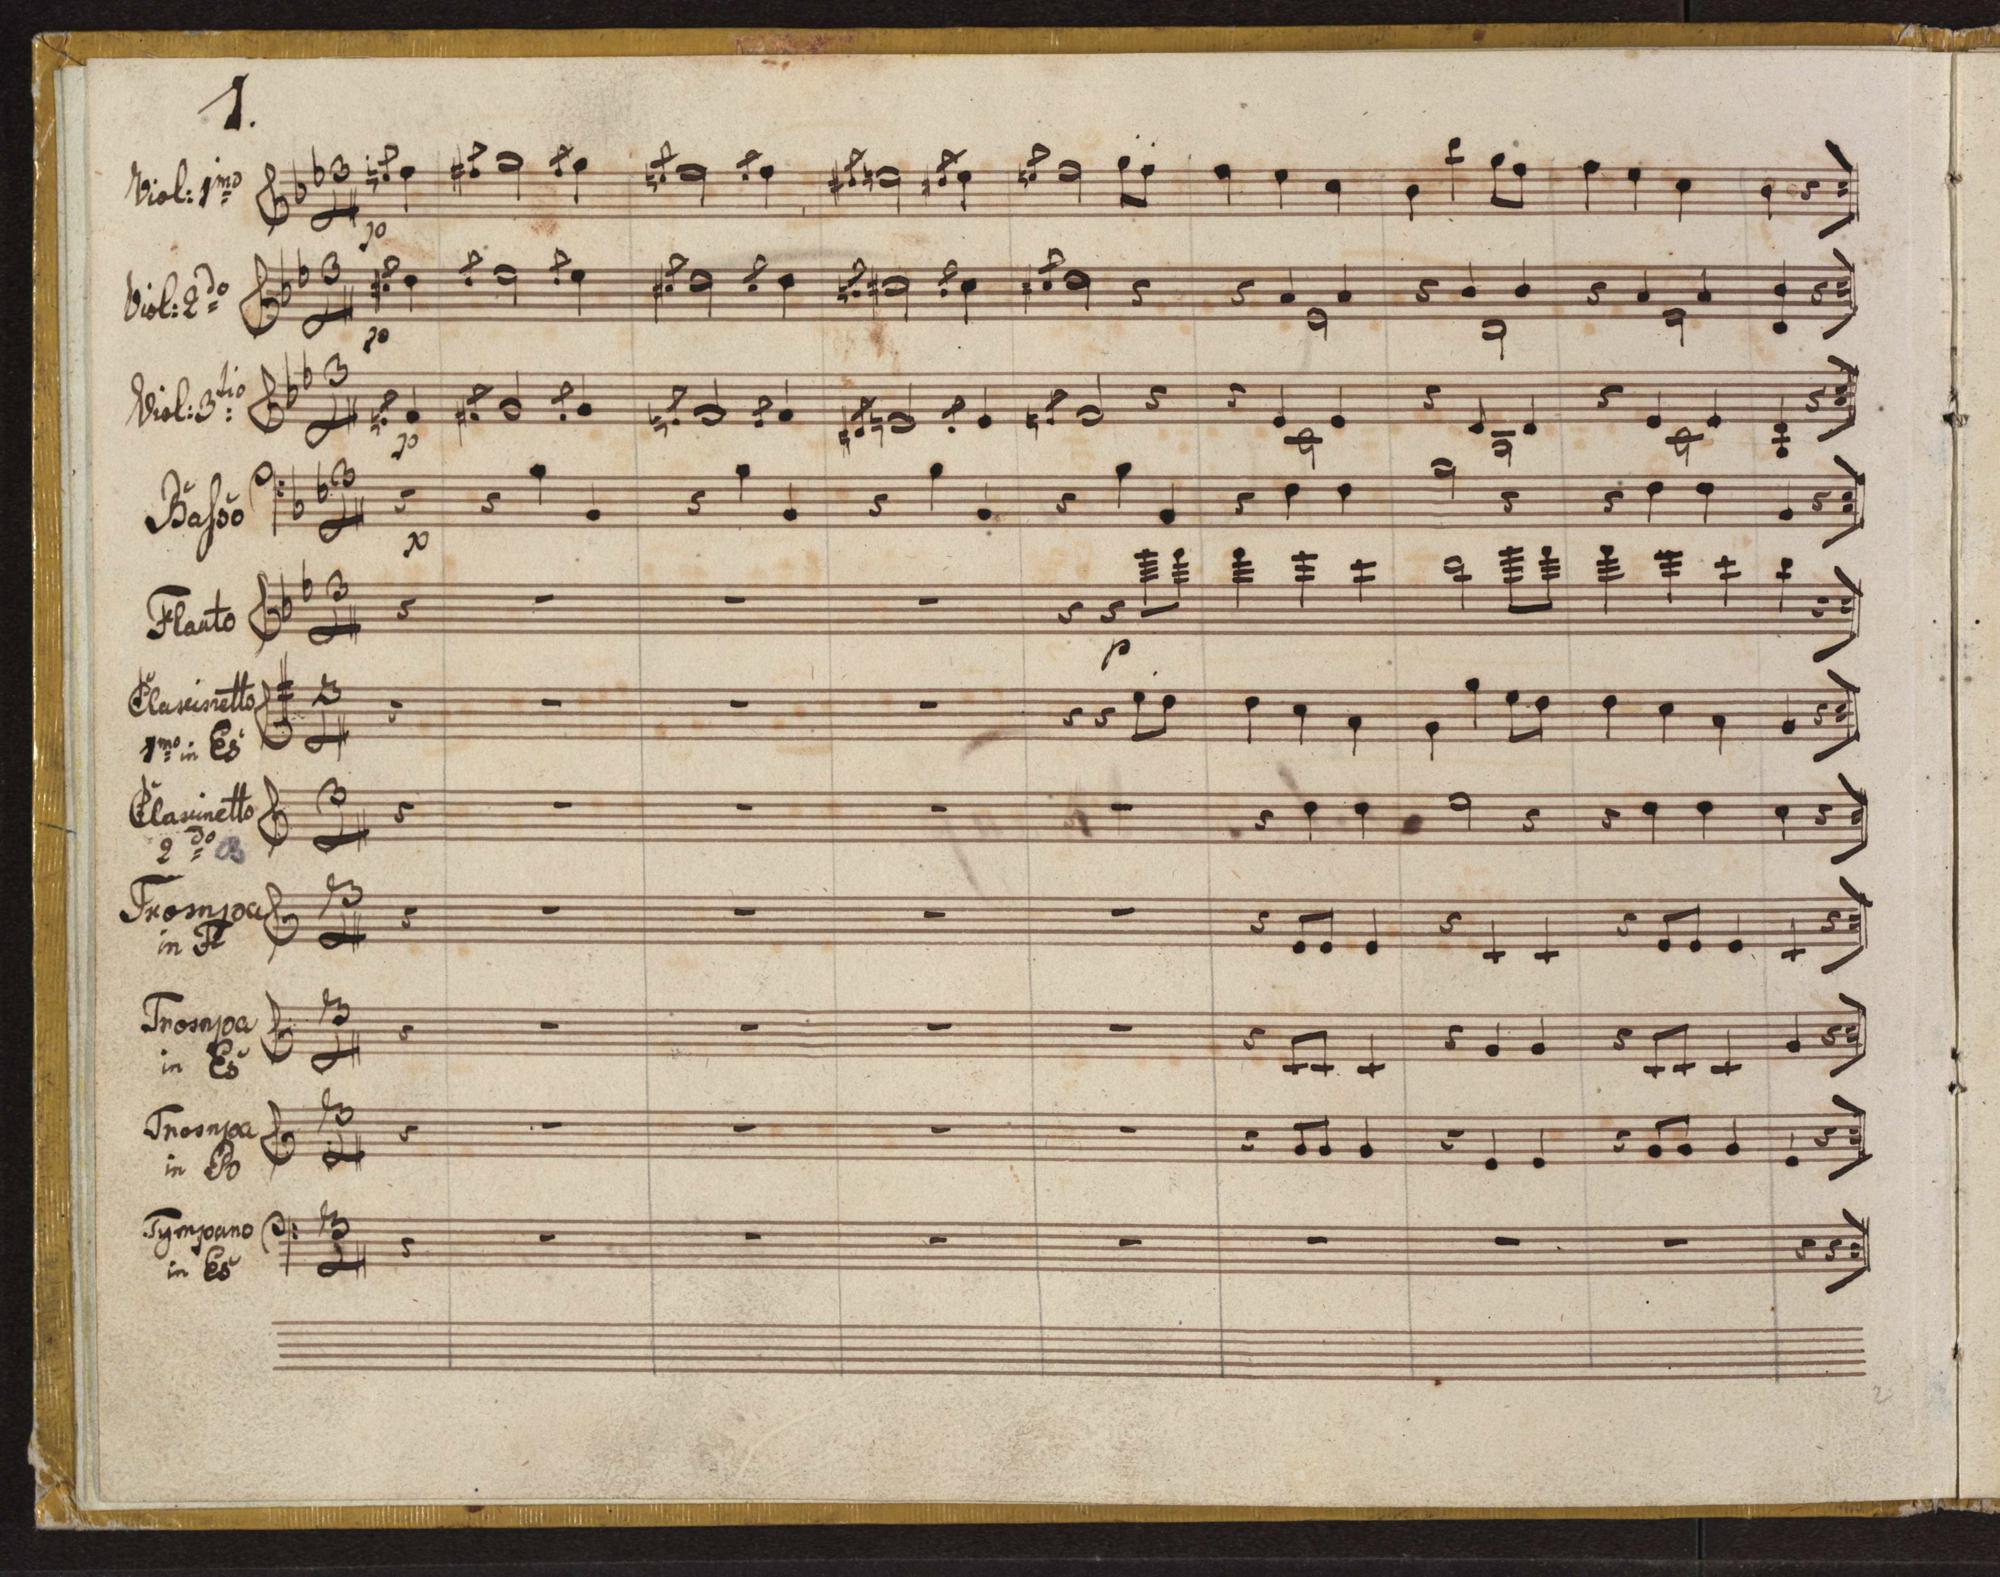 1.
Viol: 1mo
po
Viol: 2do
po
Viol: 3tio
po
Basso
po
Flauto
p
Clarinetto
1mo in Es
Clarinetto
2do B
Trompa
in F
Trompa
in Es
Trompa
in
Tympano
in Es
2